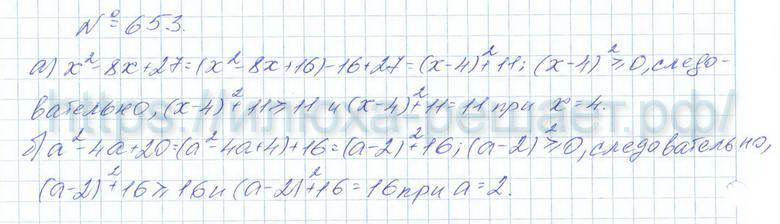 № 653.
а) x² - 8x + 27 = (x² - 8x + 16) - 16 + 27 = (x - 4)² + 11; (x - 4)² ≥ 0, следо-
вательно, (x - 4)² + 11 ≥ 11 и (x - 4)² + 11 = 11 при x = 4.
https://илюха-решает.рф/
б) a² - 4a + 20 = (a² - 4a + 4) + 16 = (a - 2)² + 16; (a - 2)² ≥ 0, следовательно,
(a - 2)² + 16 ≥ 16 и (a - 2)² + 16 = 16 при a = 2.